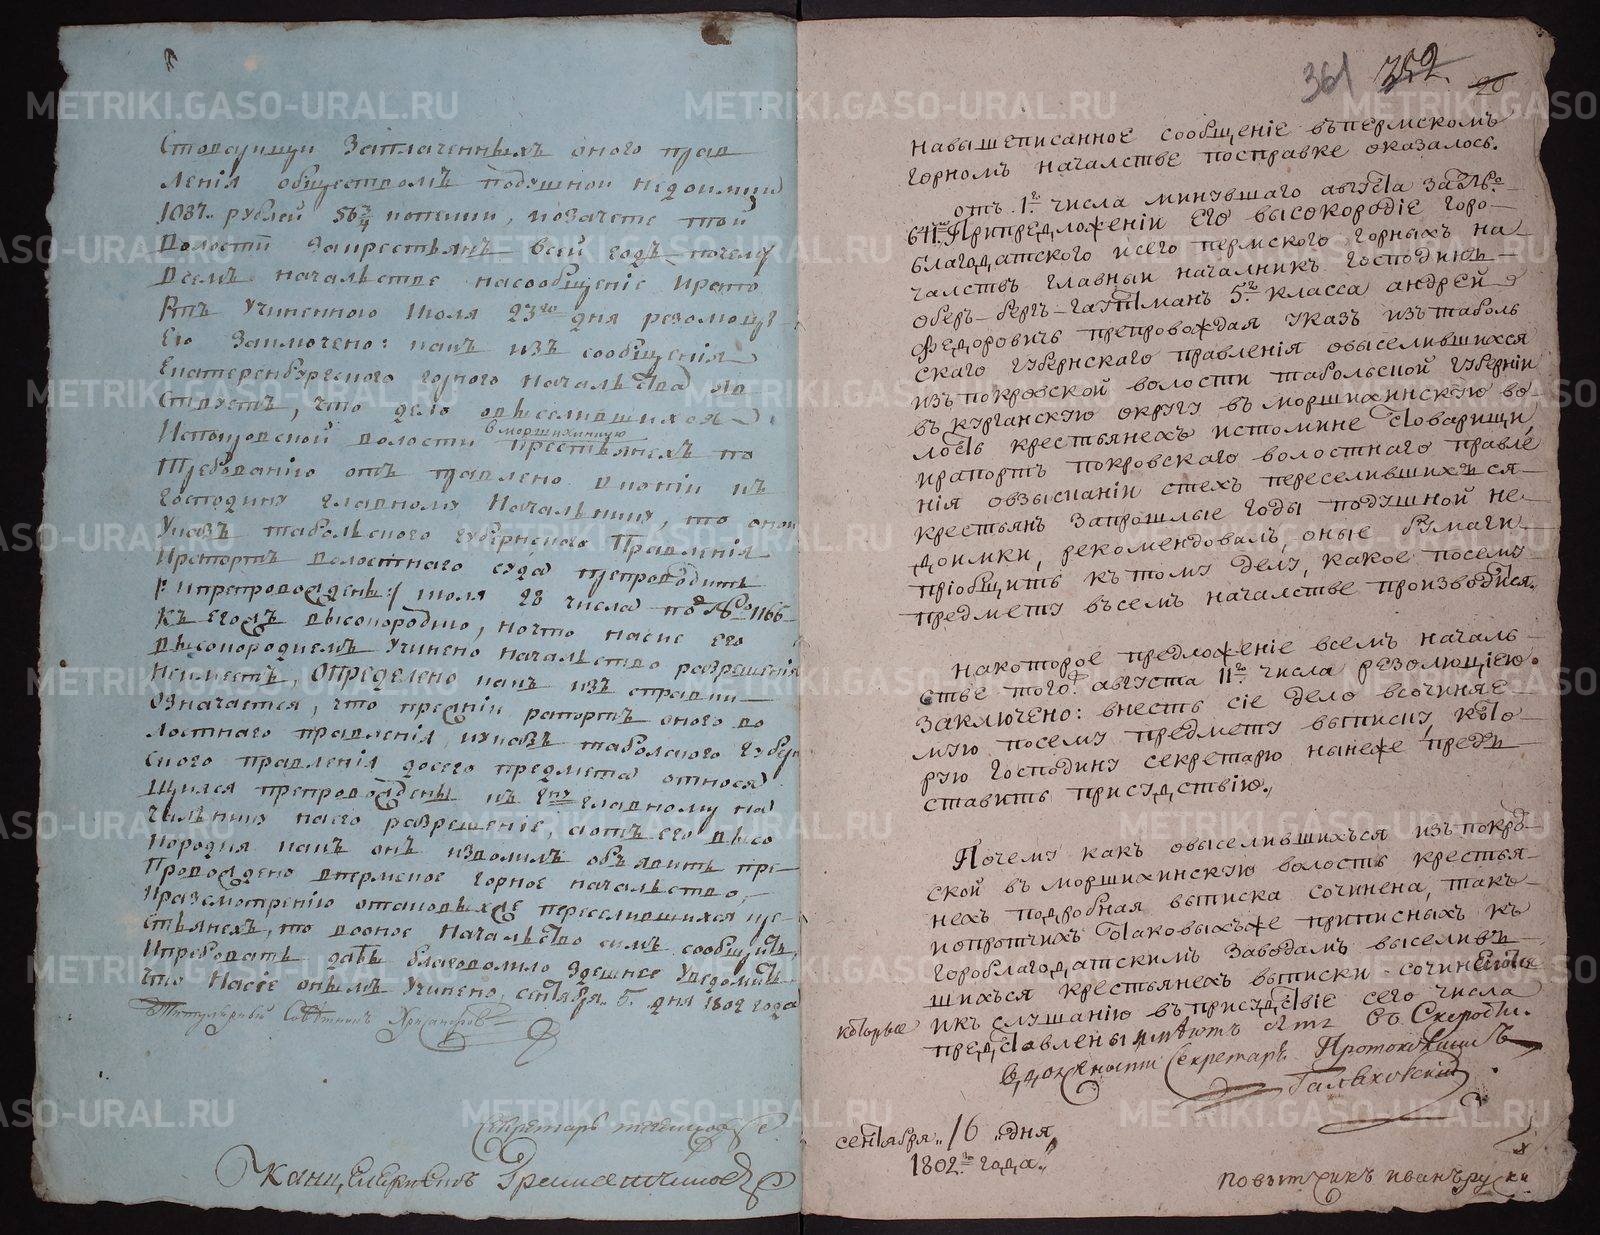 Стоварищи Заплаченныхъ оного прав
ленія обществомъ подушной недоимки
1087 рублей 56¾ копеики, и озачете той
волости закрестьянъ всей годъ почему
всемъ началстве насообщеніе и рапо
Ртъ Учиненною Июля 23го дня резолюці
Ею Заключено: какъ изъ сообщенія
Екатеренбургского горного началства яв
ствуетъ, что дело овыселившихся
Испокровской волости в моршихинскую крестьянехъ по
Требованію отправлено вконіи къ
Господину главному Началнику, то оной
Указъ табольского губернского Правленія
Ирапортъ волостнаго суда препроводить
/: ипрепровожденъ :/ июля 28 числа под № 1166
Къ Его Высокородию, ночто насие его
Высокородиемъ Учинено началство разрешенія
Неиметъ, Определено какъ изъ справки
Означается, что прежніи рапортъ оного во
лостнаго правленія, иуказъ табольского Губерн
ского правленія досего предмета относя
щился препровождены къ Гну главному на
чалнику насего разрешеніе, аотъ его высо
кородия какъ онъ изволилъ объявить пре
провождено впермское горное началство,
Кразсмотрению отаковыхже переселившихся кре
стьянехъ, то вооное Началство симъ сообщить,
Итребовать дабы благоволило здешнее Уведомить
что Насіе онымъ Учинено, сентября 5 дня 1802 года
Титулярный Советникъ
Секретарь
Канцеляристъ
361 352 20
навышеписанное сообщеніе въпермскомъ
горномъ началстве посправке оказалось.
отъ 1го числа минувшаго августа за №
641м Припредложеніи Его высокородіе горо
благодатского ивсего пермского горныхъ на
чалствъ главныи началникъ господинъ
Оберъ-бергъ-гауптманъ 5го класса андрей
Федоровичь препровождая указъ изътаболь
скаго губернскаго правленія овыселившихся
изъ покровской волости табольской губерніи
въ курганскую округу въ моршихинскую во
лость крестьянехъ истомине стоварищи,
ирапортъ покровскаго волостнаго правле
нія овзысканіи стехъ переселившихъся
крестьянъ запрошлые годы подушной не
доимки, рекомендовалъ, оные бумаги
пріобщить къ тому делу, какое посему
предмету въсемъ началстве производится.
Накоторое предложеніе всемъ началь
стве тогож августа 11го числа резолюціею
заключено: внесть сіе дело всочиняе
мую посему предмету выписку, кото
рую Господину секретарю нынеже пред
ставить присудствію.
Почему какъ овыселившихъся изъпокров
ской въ моршихинскую волость крестья
нехъ подробная выписка сочинена, такъ
ипопротчихъ таковыхъже приписныхъ къ
гороблагодатскимъ заводамъ выселив
шихъся крестьянехъ выписки сочинены
которые икъ слушанію въприсудствіе сего числа
представлены имѣютъ быть въ Скорости.
вдолжности Секретаря Протоколистъ
сентября 16 дня
1802го года
повытчикъ иванъ